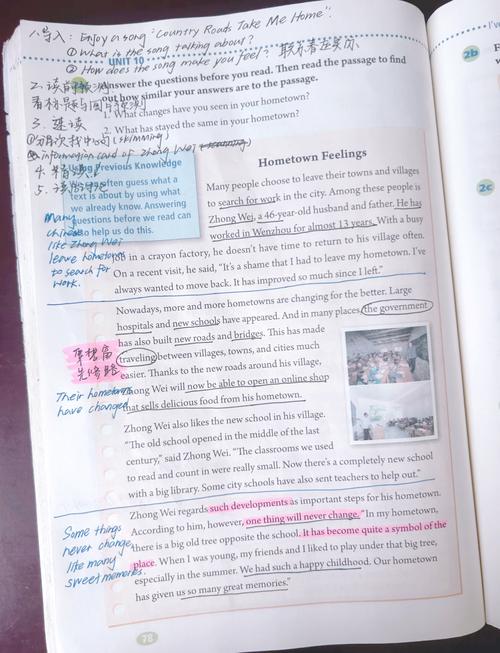 八、导入: Enjoy a song "Country Roads Take Me Home".
① What is the song talking about?
② How does the song make you feel?
UNIT 10
2b
Answer the questions before you read. Then read the passage to find
out how similar your answers are to the passage.
1. What changes have you seen in your hometown?
2. What has stayed the same in your hometown?
3. 速读
(skimming)
information card of Zhong Wei
4.
5.
Using Previous Knowledge
We can often guess what a
text is about by using what
we already know. Answering
questions before we read can
also help us do this.
Many
chinese
like Zhong Wei
leave hometown
to search for
work.
Hometown Feelings
Many people choose to leave their towns and villages
to search for work in the city. Among these people is
Zhong Wei, a 46-year-old husband and father. He has
worked in Wenzhou for almost 13 years. With a busy
job in a crayon factory, he doesn't have time to return to his village often.
On a recent visit, he said, "It's a shame that I had to leave my hometown. I've
always wanted to move back. It has improved so much since I left."
Nowadays, more and more hometowns are changing for the better. Large
hospitals and new schools have appeared. And in many places, the government
has also built new roads and bridges. This has made
traveling between villages, towns, and cities much
easier. Thanks to the new roads around his village,
Zhong Wei will now be able to open an online shop
that sells delicious food from his hometown.
要想富
先修路
Their hometowns
have changed
Zhong Wei also likes the new school in his village.
"The old school opened in the middle of the last
century," said Zhong Wei. "The classrooms we used
to read and count in were really small. Now there's a completely new school
with a big library. Some city schools have also sent teachers to help out."
Zhong Wei regards such developments as important steps for his hometown.
According to him, however, one thing will never change. "In my hometown,
there is a big old tree opposite the school. It has become quite a symbol of the
place. When I was young, my friends and I liked to play under that big tree,
especially in the summer. We had such a happy childhood. Our hometown
has given us so many great memories."
Some things
never change,
like many
sweet memories.
78
2b
2c